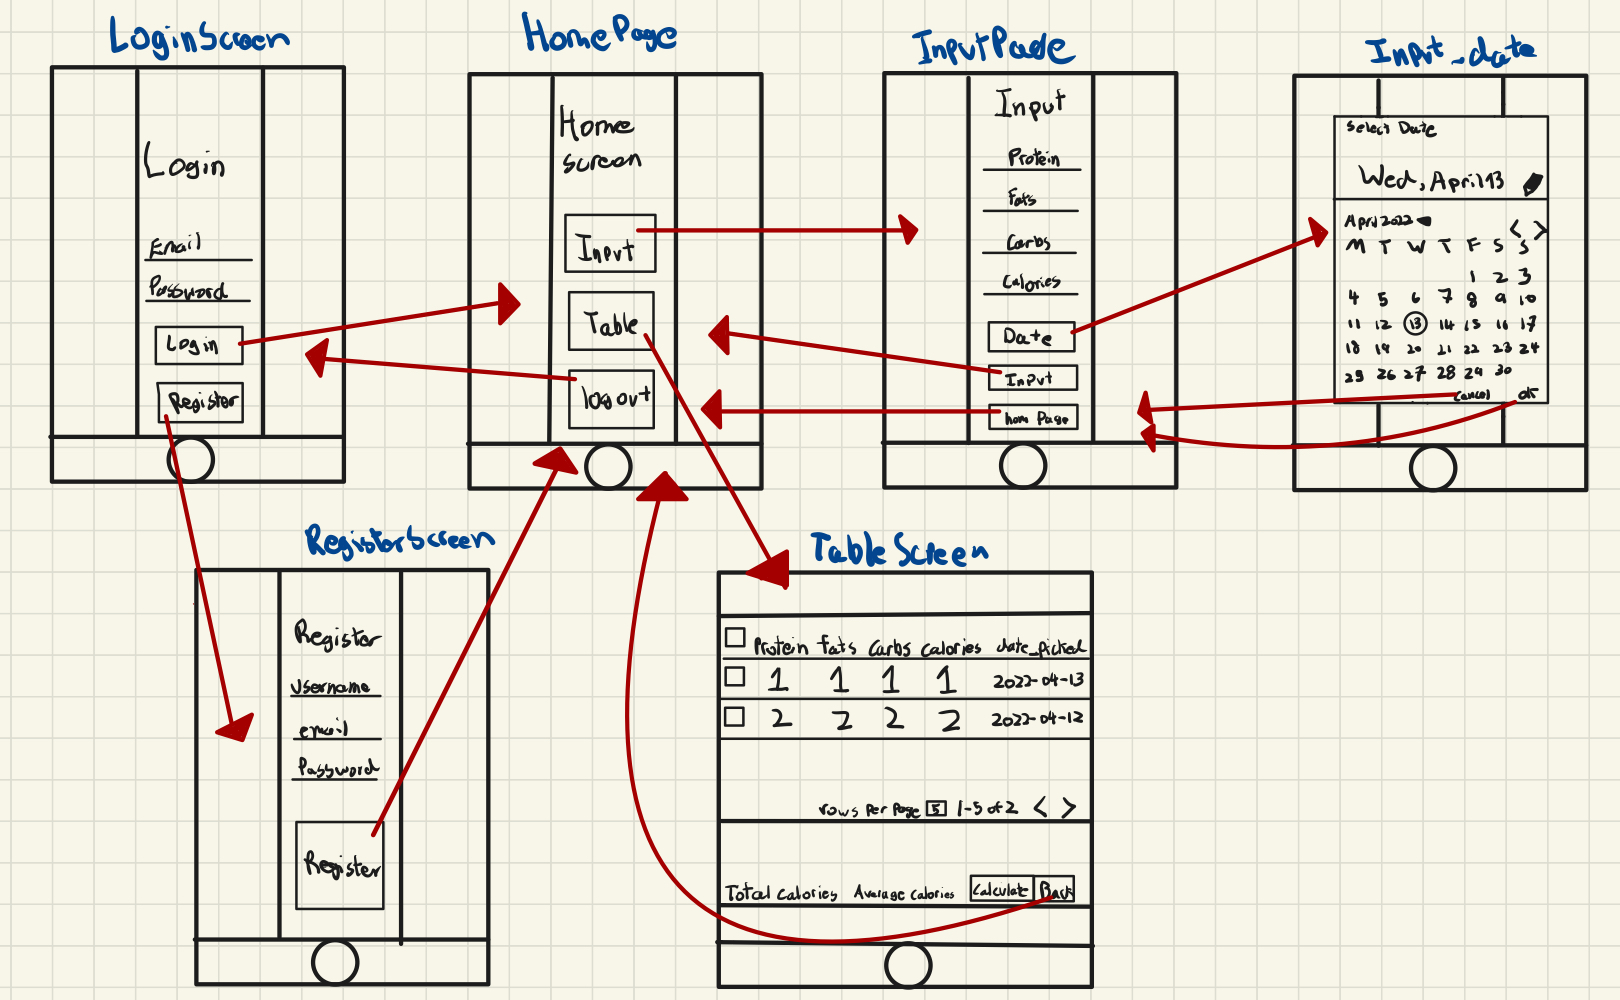 LoginScreen
Login
Email
Password
Login
Register
HomePage
Home
screen
Input
Table
logout
InputPage
Input
Protein
Fats
Carbs
Calories
Date
Input
hom Page
Input_date
Select Date
Wed, April 13
April 2022
< >
M T W T F S S
1 2 3
4 5 6 7 8 9 10
11 12 13 14 15 16 17
18 19 20 21 22 23 24
25 26 27 28 29 30
Cancel ok
RegistorScreen
Register
Username
email
Password
Register
TableScreen
Protein fats Carbs calories date_picked
1 1 1 1 2022-04-13
2 2 2 2 2022-04-12
rows Per Page 5 1-5 of 2 < >
Total calories Average calories Calculate Back